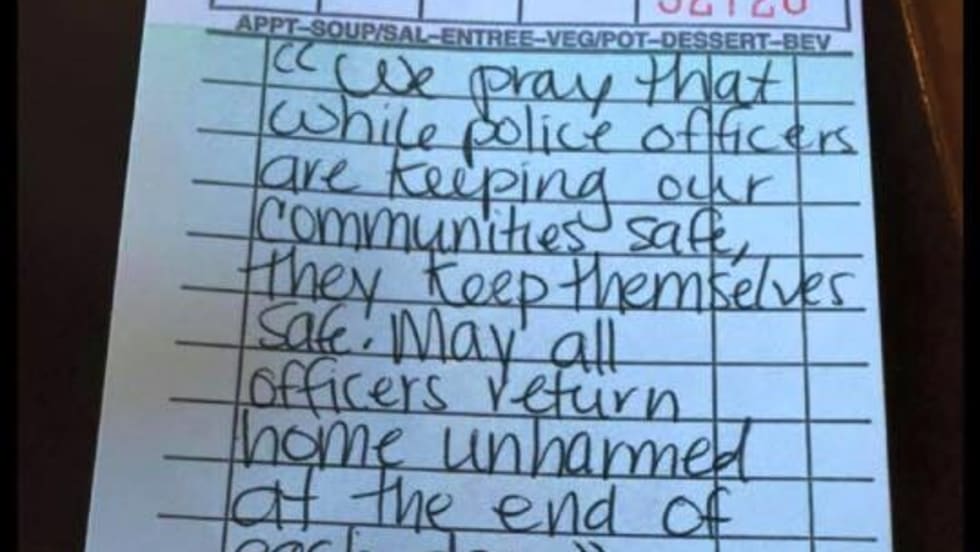 APPT-SOUP/SAL-ENTREE-VEG/POT-DESSERT-BEV
“We pray that
while police officers
are keeping our
communities safe,
they keep themselves
safe. May all
officers return
home unharmed
at the end of